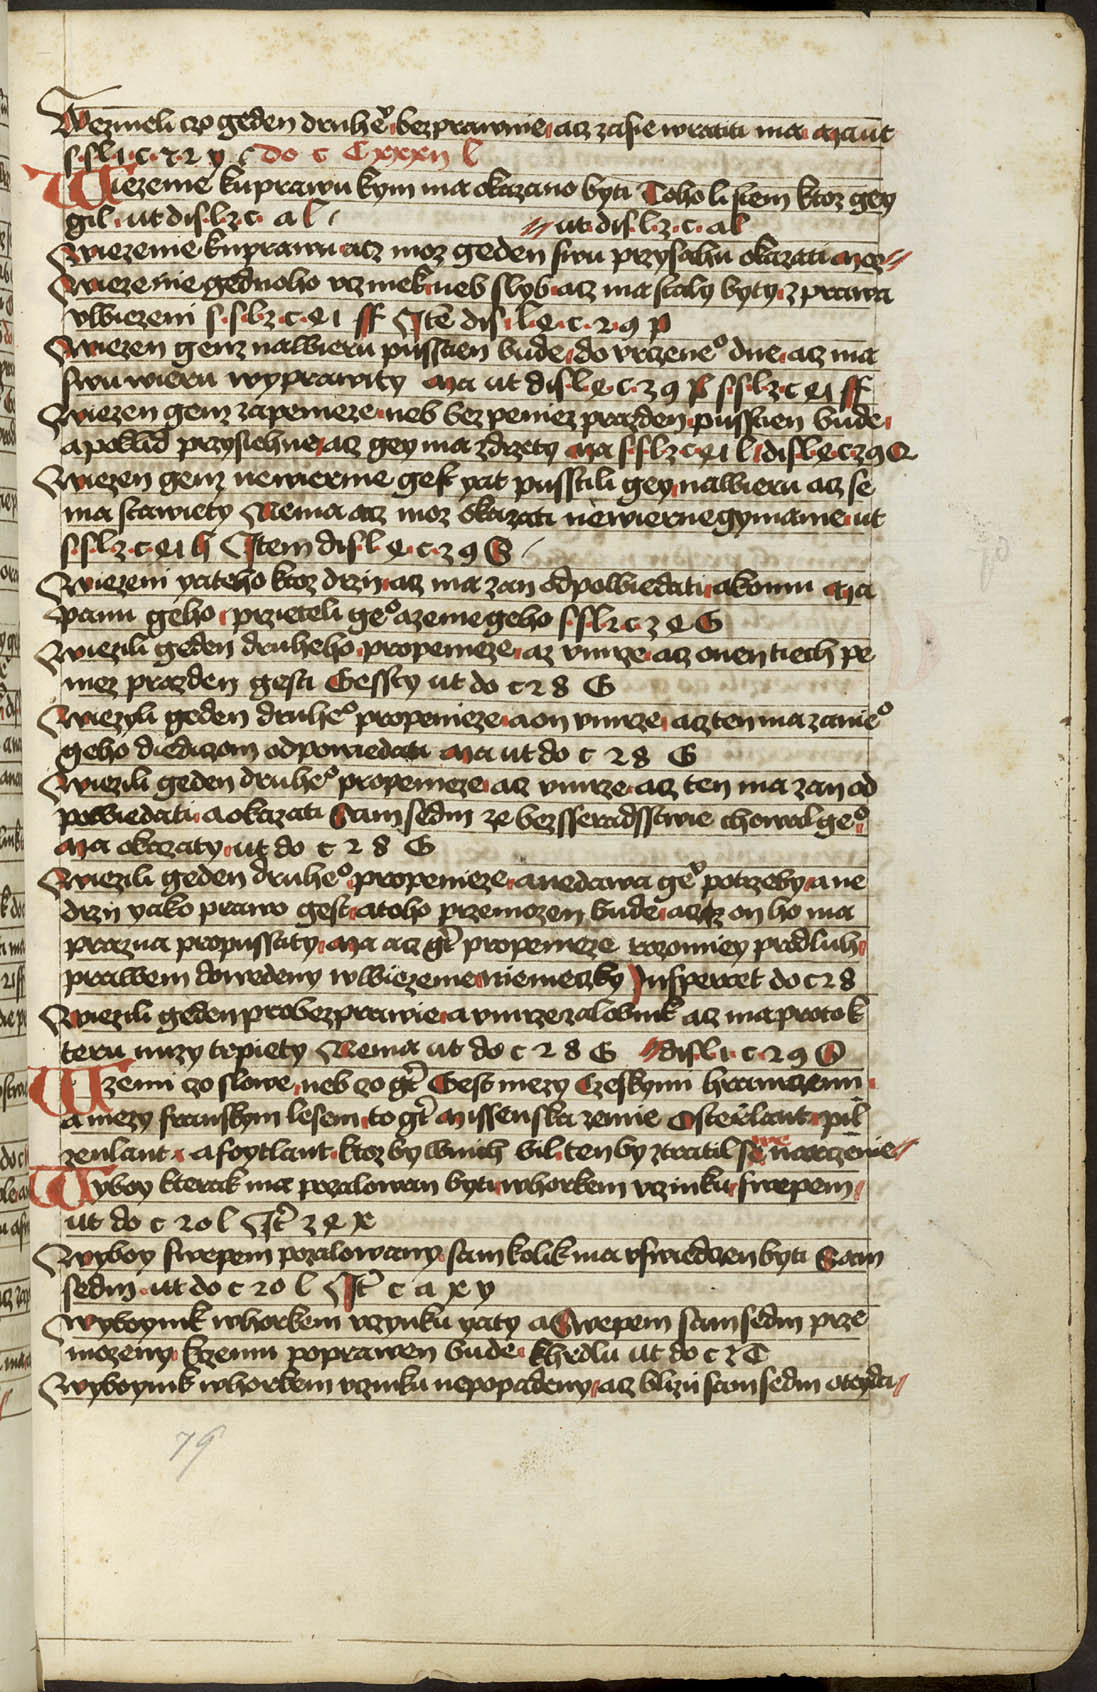 Wezmeli czo geden druheº bezprawnie acz zasie wratiti ma Ma ut
s. sl. 1. c. 7. 2 y c do c Cxxxii l
Wiezenie kuprawu kym ma okazano byti Toho listem ktoz gey
gil ut dis. l. 2. c. a l
ut. dis. l. 2. c. a l
Wiezenie kuprawu acz moz geden swu przysahu okazati Moz
Wiezenie gednoho vrzniek neb slyb acz ma staly byty z prawa
vwiezeni s. s. l. 2. c. e 1 ff Jtē dis. l. e. c. 2. 9 p
Wiezen genz nawieru pusstien bude do vrczeneº dne acz ma
swu wieru wyprawity Ma ut dis. l. e c. 2 9 p s. s. l. 2. c e 1 ff
Wiezen genz zapenieze neb bez peniez prazden pusstien bude
apowūd przysiehne acz gey ma zdrzety Ma s. s. l. 2 c e 1 l dis. l. e c 2 9 Q
Wiezen genz newierne gest yat pusstili gey nawieru acz se
ma stawiety Nema acz moz okazati newierne gymanie ut
s. s. l. 2. c. e 1 h Jtem dis. l. e. c. 2 9 S
Wiezeni yateho ktoz drzij acz ma zan odpowiedati akomu Ma
panu geho przieteli geº azenie geho s. s. l. 2 c 2 e G
Wiezili geden druheho propenieze az vmrze acz onen tiech pe
niez prazden gesti Gessty ut do c 2 8 G
Wiezyli geden druheº propenieze aon vmrze acz ten ma zanieº
geho diediczom odpowiedati Ma ut do c 2 8 G
Wiezili geden druheº propenieze acz vmrze acz ten ma zan od
powiedati aokazati Sam sedm ze bezsseradsstwie chowal geº
Ma okazaty ut do c 2 8 G
Wiezili geden druheº propenieze anedawa geº potrzeby ane
drzij yako prawo gest atoho przemozen bude acz on ho ma
prazna propusstity Ma acz gt propenieze rozomiey prodluh
prawem dowedeny wwiezenie niemeczky Jnsperret do c 2 8
Wiezili geden probezprawie avmrze zalobnik acz ma protok
teru muzy trpiety Nema ut do c 2 8 G dis. l. 1. c. 2 9 O
Wzemi czo slowe neb czo gt Gest mezy Czeskymi hraniczemi
amezy franskym lesem to gt Missenska zemie Osterlant pil
zenlant afoytlant ktoz by wnich bil ten by ztratil sve narczenie
Wyboy kterak ma pozalowan byti whorkem vczinku swepem
ut do c 20 l Jt 2 e x
Wyboy swepem pozalowany samkolik ma vswiedczen byti Sam
sedm ut do c 20 l Jt c a x y
Wyboynik whorkem vczynku yaty aSwepem sam sedm prze
mozeny kzemi poprawen bude khrdlu ut do c 2 T
Wyboynik whorkem vczinku nepopadeny acz blizij sam sedm oteyda
79